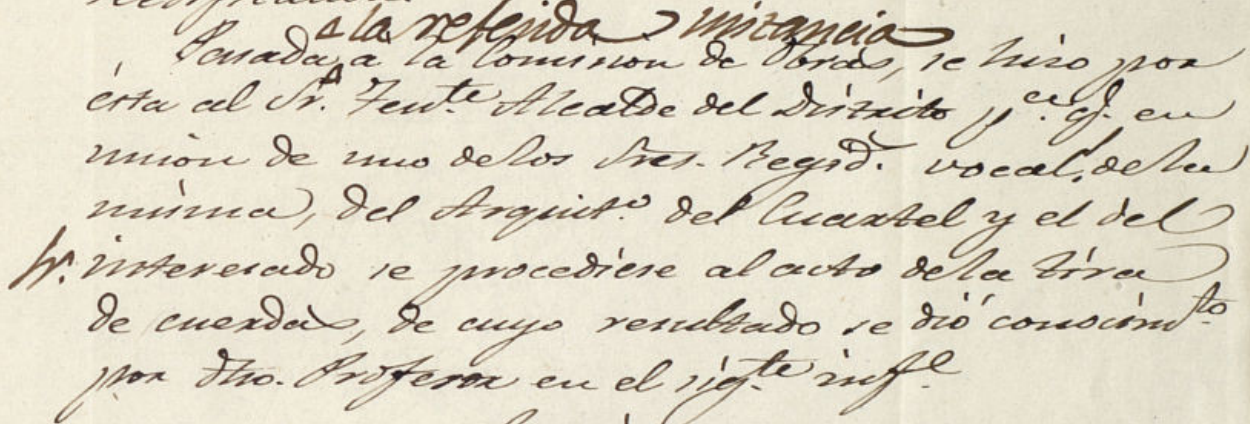 la referida instancia
Pasada a la Comision de Obras, se hizo por
ésta al Sr. Tente Alcalde del Distrito pa. q. en
union de uno de los Sres. Regid. vocal. de la
misma, del Arquito. del Cuartel y el del
Sr. interesado se procediese al acto de la tira
de cuerdas, de cuyo resultado se dió conocimto
por dho. Profesor en el sigte infe